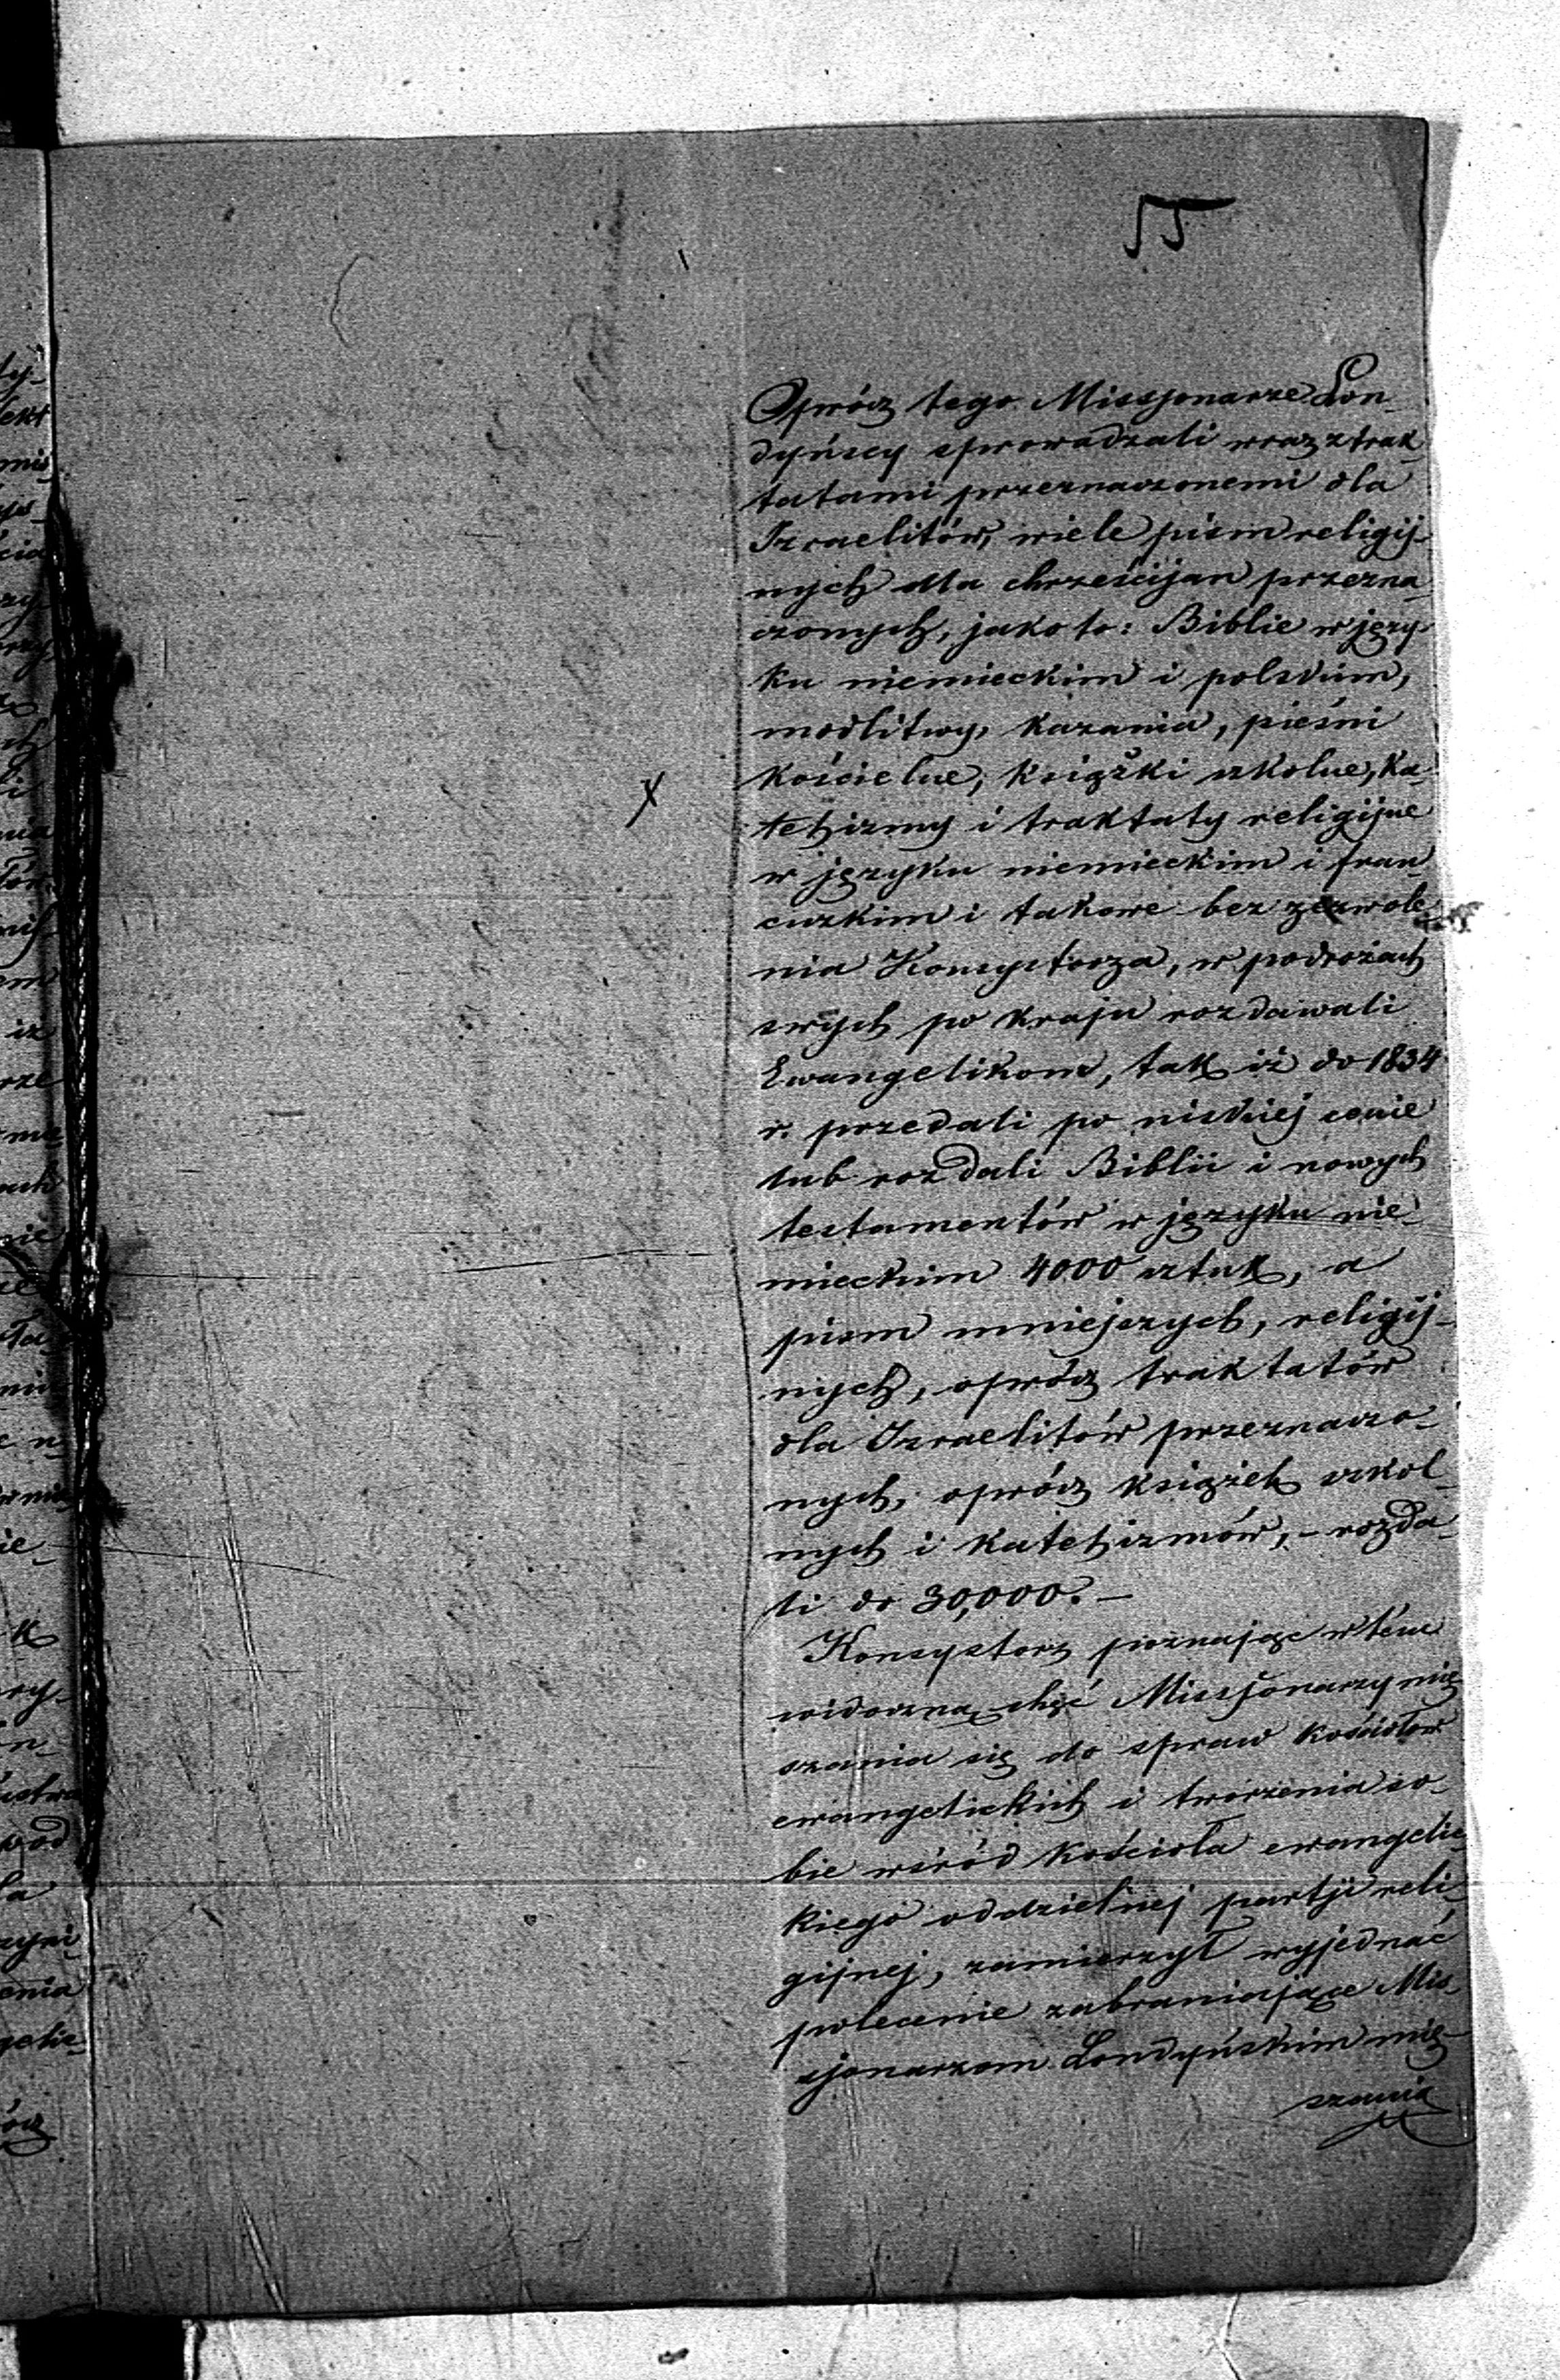 55
Oprócz tego Missjonarze Lon-
dyńscy sprowadzali wraz z trak-
tatami przeznaczonemi dla
Izraelitów, wiele pism religij-
nych dla chrześcijan przezna-
czonych, jako to: Biblie w języ-
ku niemieckim i polskim,
modlitwy, kazania, pieśni
kościelne, książki szkolne, ka-
techizmy i traktaty religijne
w języku niemieckim i fran-
cuzkim i takowe bez zezwole-
nia Konsystorza, w podróżach
swych po kraju rozdawali
Ewangelikom, tak iż do 1834
r. przedali po niskiej cenie
lub rozdali Biblii i nowych
testamentów w języku nie-
mieckim 4000 sztuk, a
pism mniejszych, religij-
nych, oprócz traktatów
dla Izraelitów przeznaczo-
nych, oprócz książek szkol-
nych i katechizmów, - rozda-
li do 30,000. -
Konsystorz poznając w tém
widoczną chęć Missjonarzy mię-
szania się do spraw kościołów
ewangelickich i tworzenia so-
bie wśród kościoła ewangelic-
kiego oddzielnej partji reli-
gijnej, zamierzył wyjednać
polecenie zabraniające Mis-
sjonarzom Londyńskim mię-
szania